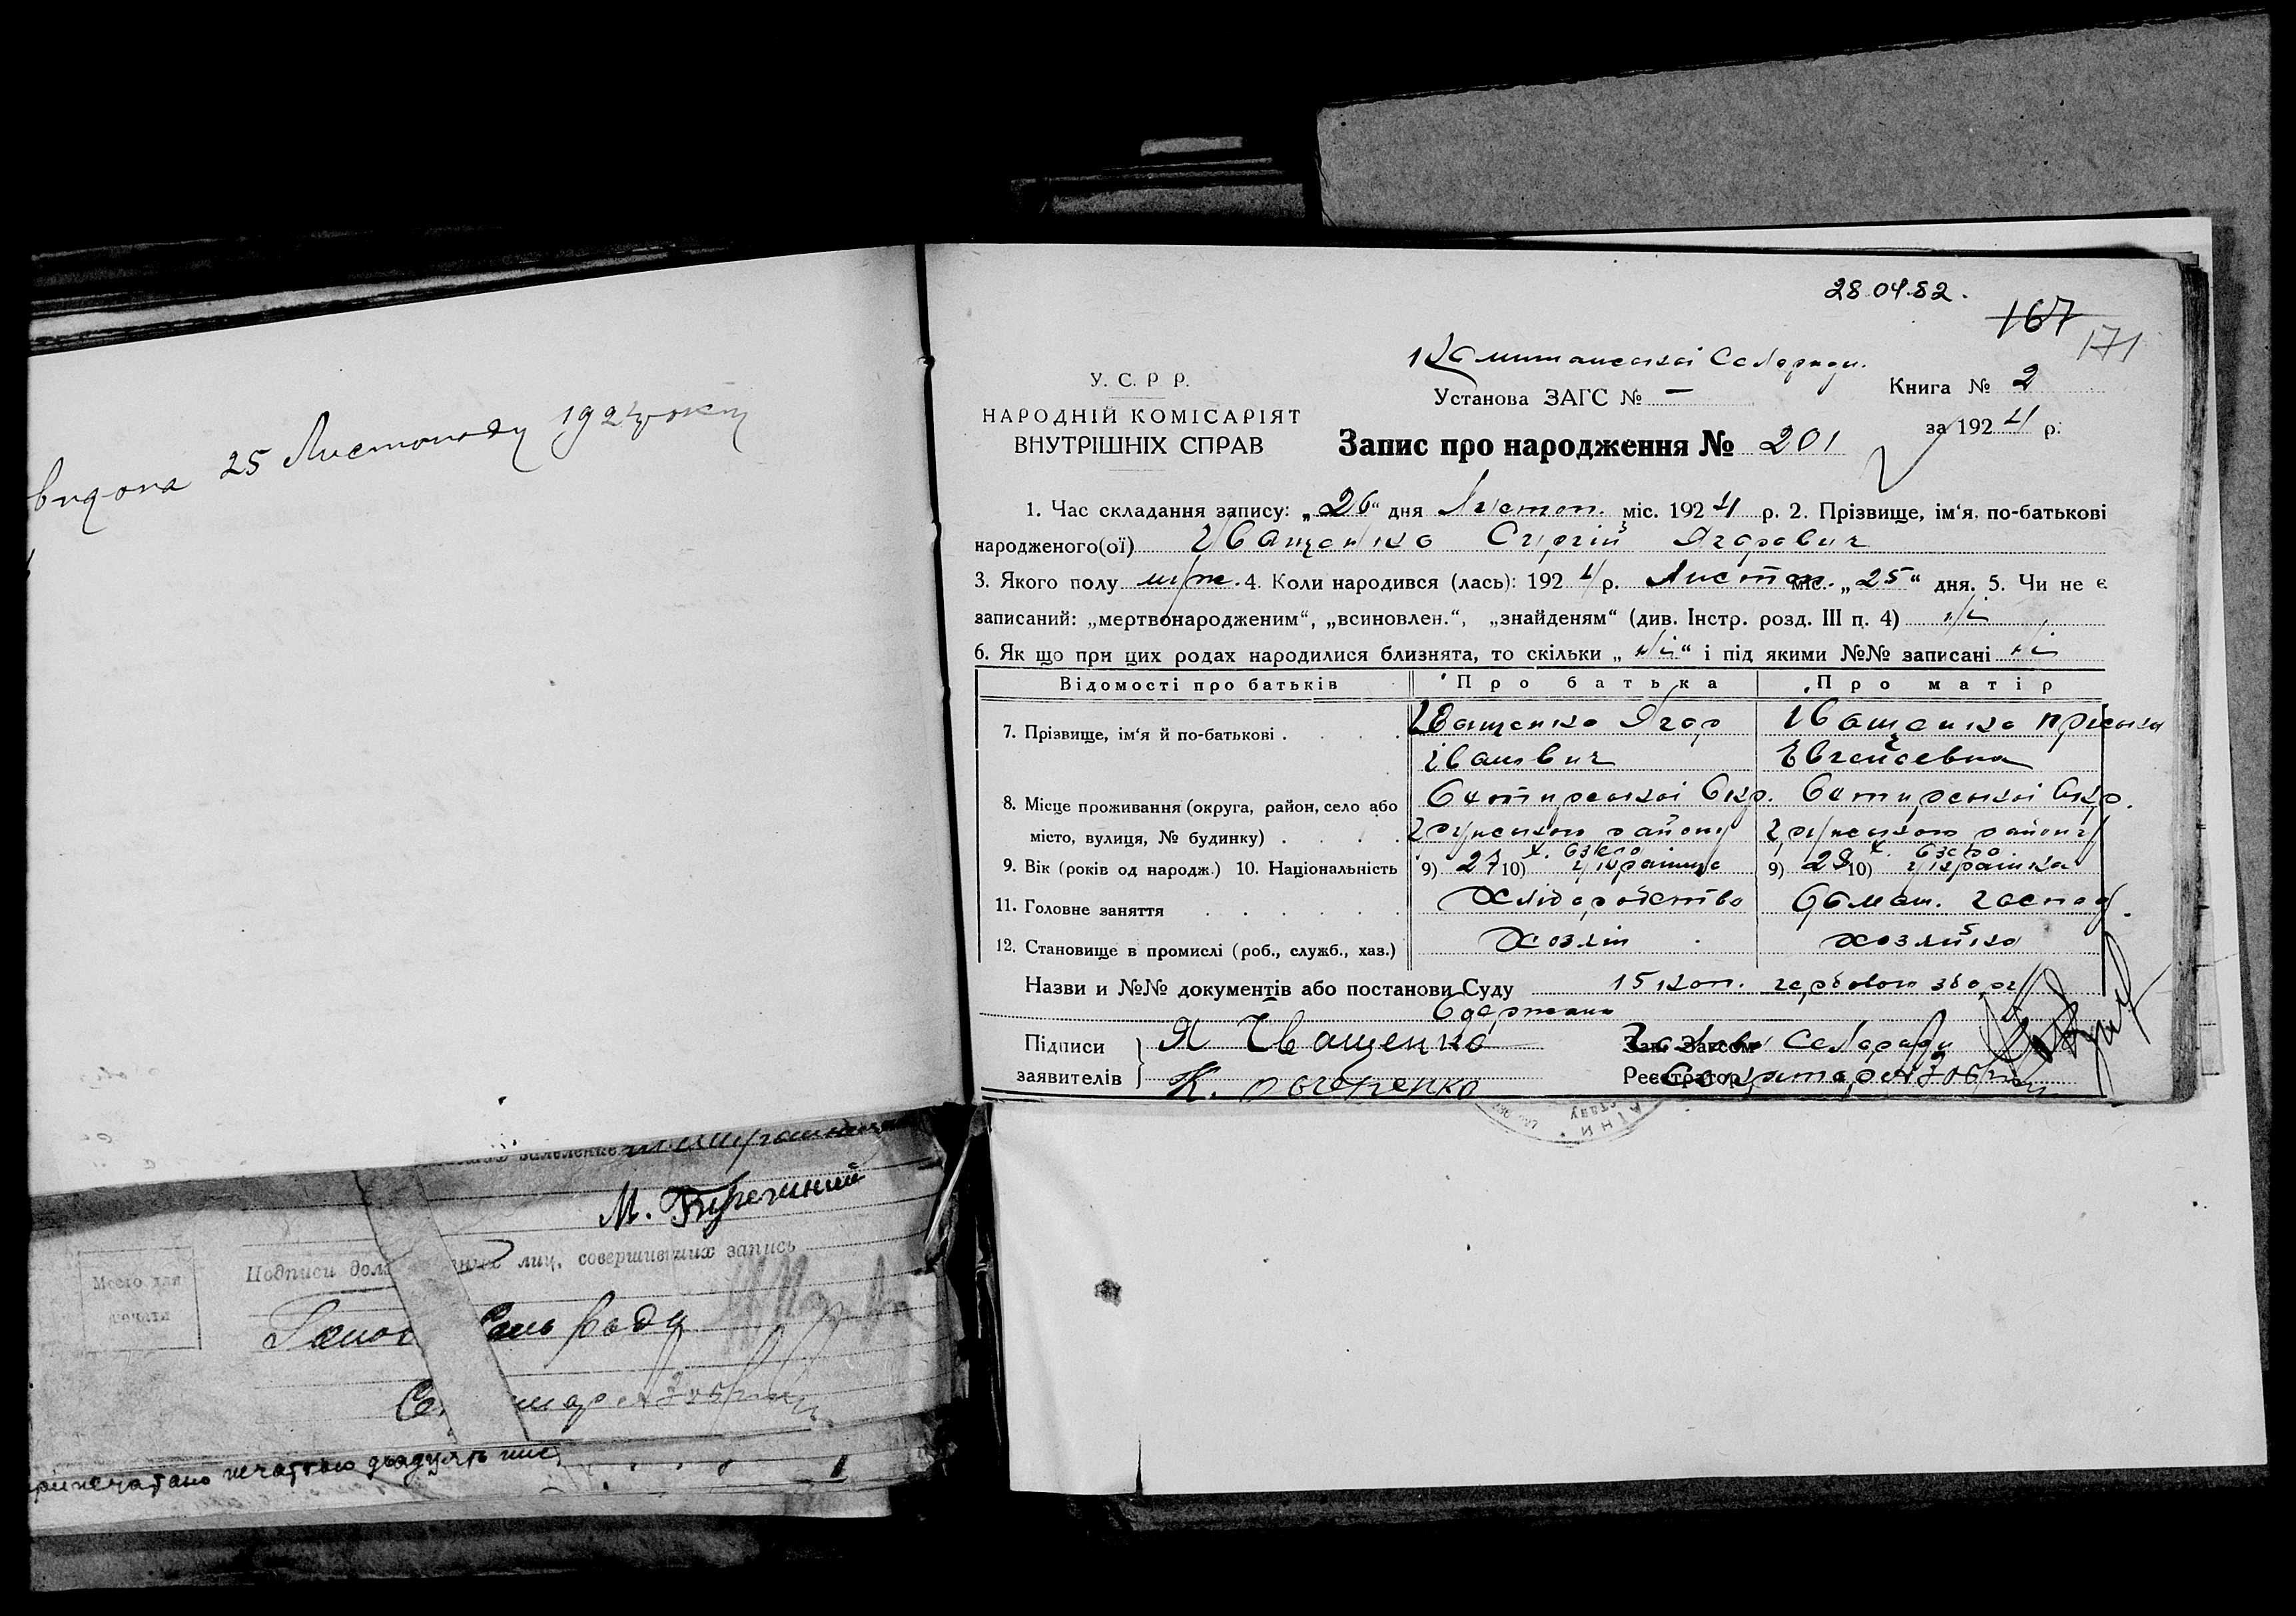 видона 25 Листопаду 1924 року
28.04.82.
167
171
Сельради.
У. С. Р Р.
Установа ЗАГС № —
Книга № 2
НАРОДНІЙ КОМІСАРІЯТ
ВНУТРІШНІХ СПРАВ
за 1924 р.
Запис про народження № 201
1. Час складання запису: „26“ дня Листоп. міс. 1924 р. 2. Прізвище, ім‘я, по-батькові
народженого(ої) Іващенко Сергій Ягорович
3. Якого полу муж. 4. Коли народився (лась): 1924 р. Листоп. міс. „25“ дня. 5. Чи не є
записаний: „мертвонародженим“, „всиновлен.“, „знайденям“ (див. Інстр. розд. III п. 4) ні
6. Як що при цих родах народилися близнята, то скільки „ні“ і під якими №№ записані ні
Відомості про батьків
Про батька
Про матір
7. Прізвище, ім‘я й по-батькові
Іващенко Ягор
Іванович
Іващенко Пріська
8. Місце проживання (округа, район, село або
місто, вулиця, № будинку)
Охтирської Окр.
Грунського району
х. Озеро
Охтирської Окр.
Грунського району
х. Озеро
9. Вік (років од народж.) 10. Національність
9) 27 10) українце
9) 28 10) українка
11. Головне заняття
Хліборобство
Домаш. господ.
12. Становище в промислі (роб., служб., хаз.)
Хозяін
хозяйка
Назви и №№ документів або постанови Суду 15 коп. гербового збору
Одержано
Підписи
заявителів
Я Іващенко
К.
Зав. Загсом
Голова Сельради
Реєстратор
Секретар
заявление
М.
Место для
печати
Подписи лиц, совершивших запись
Голов Сель Ради
печаттью двадцять